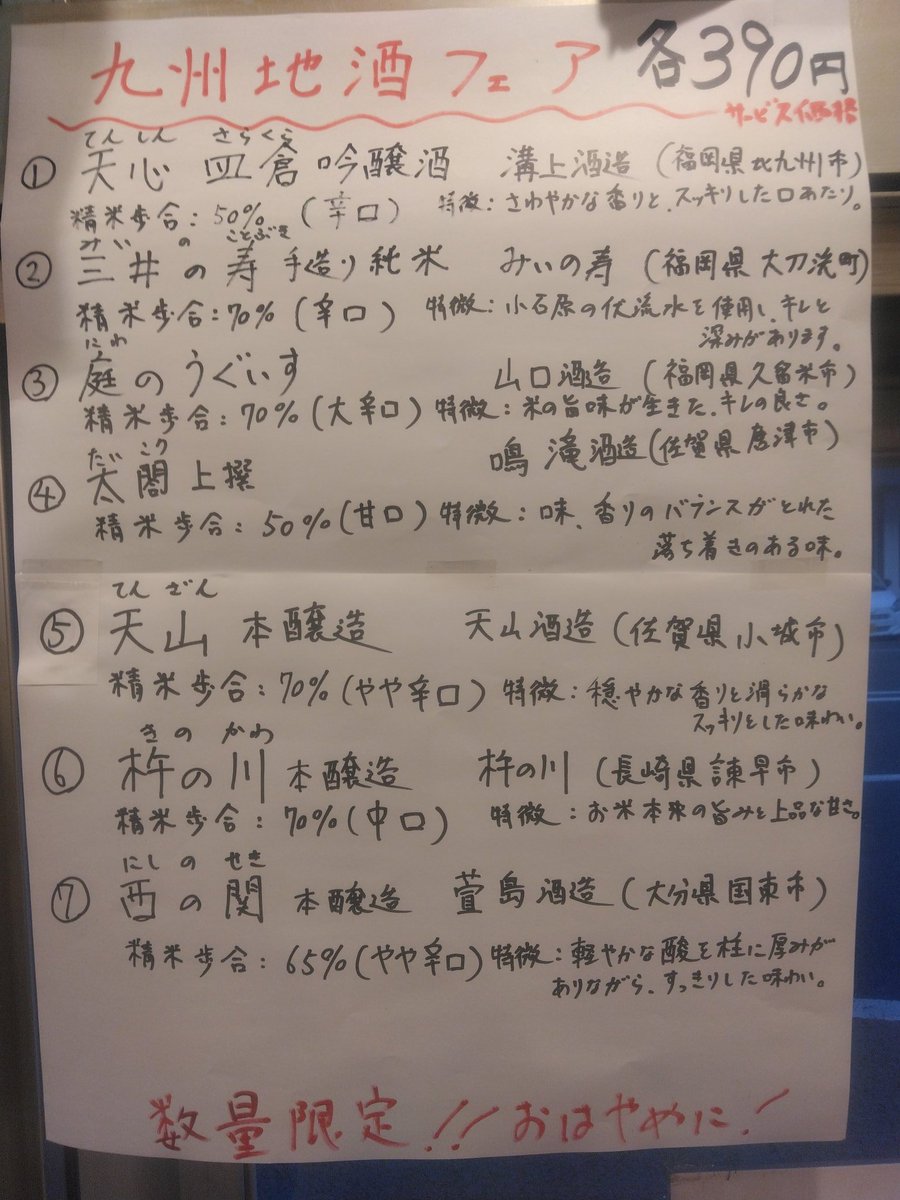 九州地酒フェア 各390円
サービス価格
てんしん さらくら
① 天心 皿倉 吟醸酒 溝上酒造 (福岡県北九州市)
精米歩合:50% (辛口) 特徴:さわやかな香りと、スッキリした口あたり。
みい の ことぶき
② 三井の寿 手造り純米 みいの寿 (福岡県大刀洗町)
精米歩合:70% (辛口) 特徴:小石原の伏流水を使用し、キレと
深みがあります。
にわ
③ 庭のうぐいす 山口酒造 (福岡県久留米市)
精米歩合:70% (大辛口) 特徴:米の旨味が生きた、キレの良さ。
たい こう
④ 太閤上撰 鳴滝酒造 (佐賀県唐津市)
精米歩合:50% (甘口) 特徴:味、香りのバランスがとれた
落ち着きのある味。
てん ざん
⑤ 天山 本醸造 天山酒造 (佐賀県小城市)
精米歩合:70% (やや辛口) 特徴:穏やかな香りと滑らかな
スッキリとした味わい。
きの かわ
⑥ 杵の川 本醸造 杵の川 (長崎県諫早市)
精米歩合:70% (中口) 特徴:お米本来の旨みと上品な甘さ。
にしの せき
⑦ 西の関 本醸造 萱島酒造 (大分県国東市)
精米歩合:65% (やや辛口) 特徴:軽やかな酸を柱に厚みが
ありながら、すっきりした味わい。
数量限定!! おはやめに!